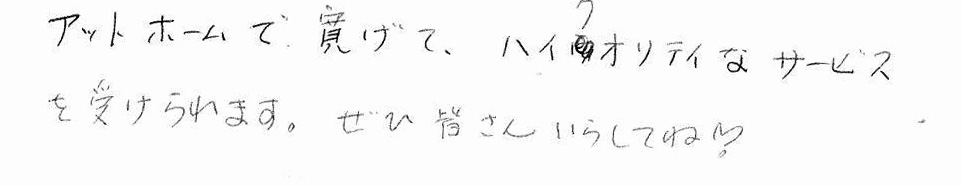 アットホームで寛げて、ハイクオリティなサービス
を受けられます。ぜひ皆さんいらしてね♡